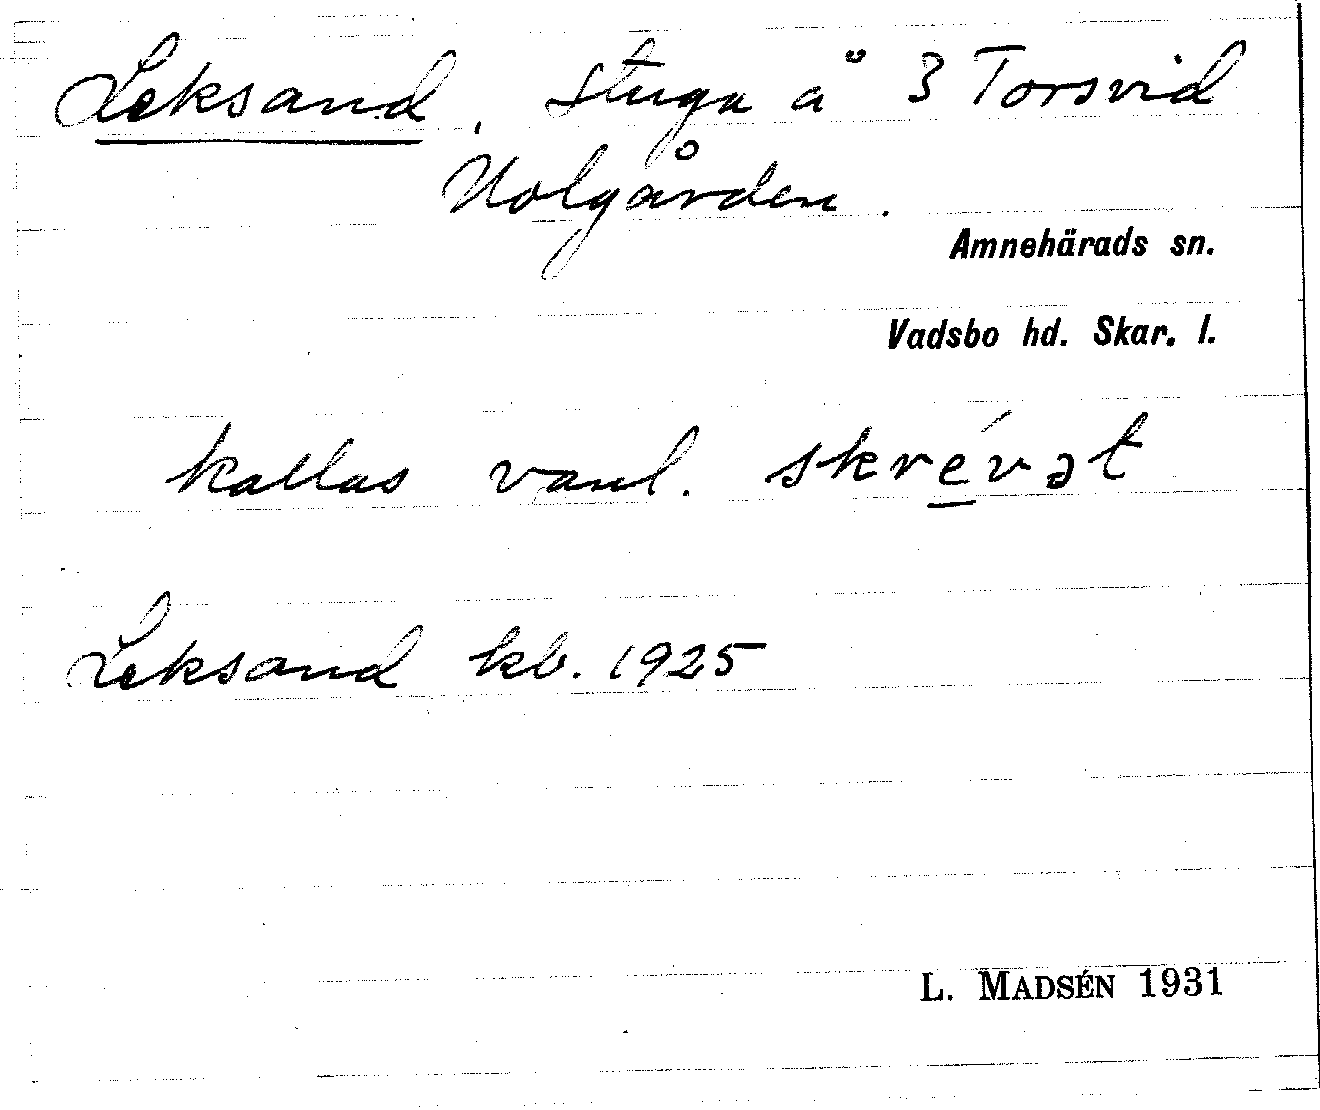 Leksand, stuga å 3 Torsvid
Nolgården.
Amnehärads sn.
Vadsbo hd. Skar. l.
kallas vanl. skré̲vət
Leksand kb. 1925
L. MADSÉN 1931